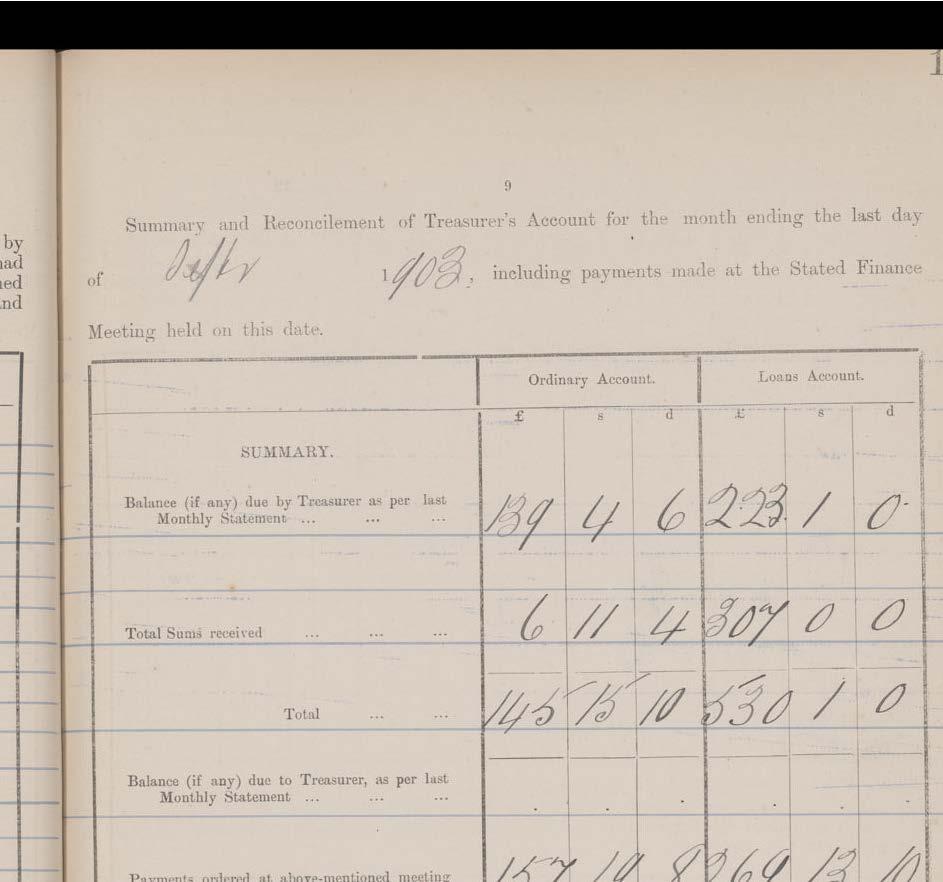 1
9
by
had
ned
and
Summary and Reconcilement of Treasurer's Account for the month ending the last day
of Septr 1903, including payments made at the Stated Finance
Meeting held on this date.
Ordinary Account. Loans Account.
£ s d £ s d
SUMMARY.
Balance (if any) due by Treasurer as per last
Monthly Statement ... ... ... 139 4 6 223 1 0
Total Sums received ... ... ... 6 11 4 307 0 0
Total ... ... 145 15 10 530 1 0
Balance (if any) due to Treasurer, as per last
Monthly Statement ... ... ... . . . . . .
Payments ordered at above-mentioned meeting 157 19 8 369 13 10